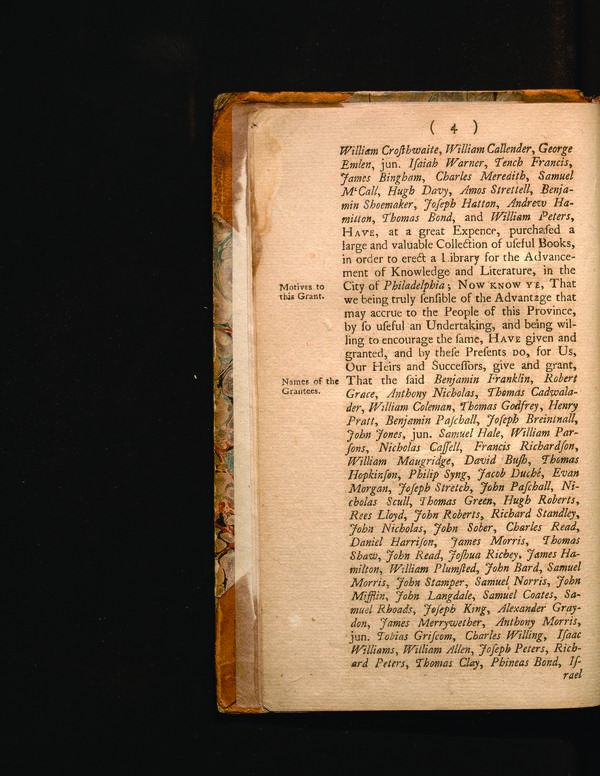 ( 4 )
William Croſthwaite, William Callender, George
Emlen, jun. Iſaiah Warner, Tench Francis,
James Bingham, Charles Meredith, Samuel
M'Call, Hugh Davy, Amos Strettell, Benja-
min Shoemaker, Joſeph Hatton, Andrew Ha-
milton, Thomas Bond, and William Peters,
HAVE, at a great Expence, purchaſed a
large and valuable Collection of uſeful Books,
in order to erect a Library for the Advance-
ment of Knowledge and Literature, in the
Motives to
this Grant.
City of Philadelphia; NOW KNOW YE, That
we being truly ſenſible of the Advantage that
may accrue to the People of this Province,
by ſo uſeful an Undertaking, and being wil-
ling to encourage the ſame, HAVE given and
granted, and by theſe Preſents DO, for Us,
Our Heirs and Succeſſors, give and grant,
Names of the
Grantees.
That the ſaid Benjamin Franklin, Robert
Grace, Anthony Nicholas, Thomas Cadwala-
der, William Coleman, Thomas Godfrey, Henry
Pratt, Benjamin Paſchall, Joſeph Breintnall,
John Jones, jun. Samuel Hale, William Par-
ſons, Nicholas Caſſell, Francis Richardſon,
William Maugridge, David Buſh, Thomas
Hopkinſon, Philip Syng, Jacob Duché, Evan
Morgan, Joſeph Stretch, John Paſchall, Ni-
cholas Scull, Thomas Green, Hugh Roberts,
Rees Lloyd, John Roberts, Richard Standley,
John Nicholas, John Sober, Charles Read,
Daniel Harriſon, James Morris, Thomas
Shaw, John Read, Joſhua Richey, James Ha-
milton, William Plumſted, John Bard, Samuel
Morris, John Stamper, Samuel Norris, John
Mifflin, John Langdale, Samuel Coates, Sa-
muel Rhoads, Joſeph King, Alexander Gray-
don, James Merrywether, Anthony Morris,
jun. Tobias Griſcom, Charles Willing, Iſaac
Williams, William Allen, Joſeph Peters, Rich-
ard Peters, Thomas Clay, Phineas Bond, Iſ-
rael